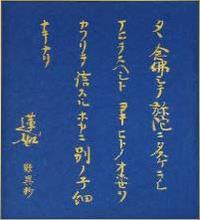 タヽ念佛シテ弥陀ニタスケラレ
マヒラスヘシト ヨキヒトノオホセヲ
カフリテ信スルホカニ別ノ子細
ナキナリ
蓮如
歎異抄